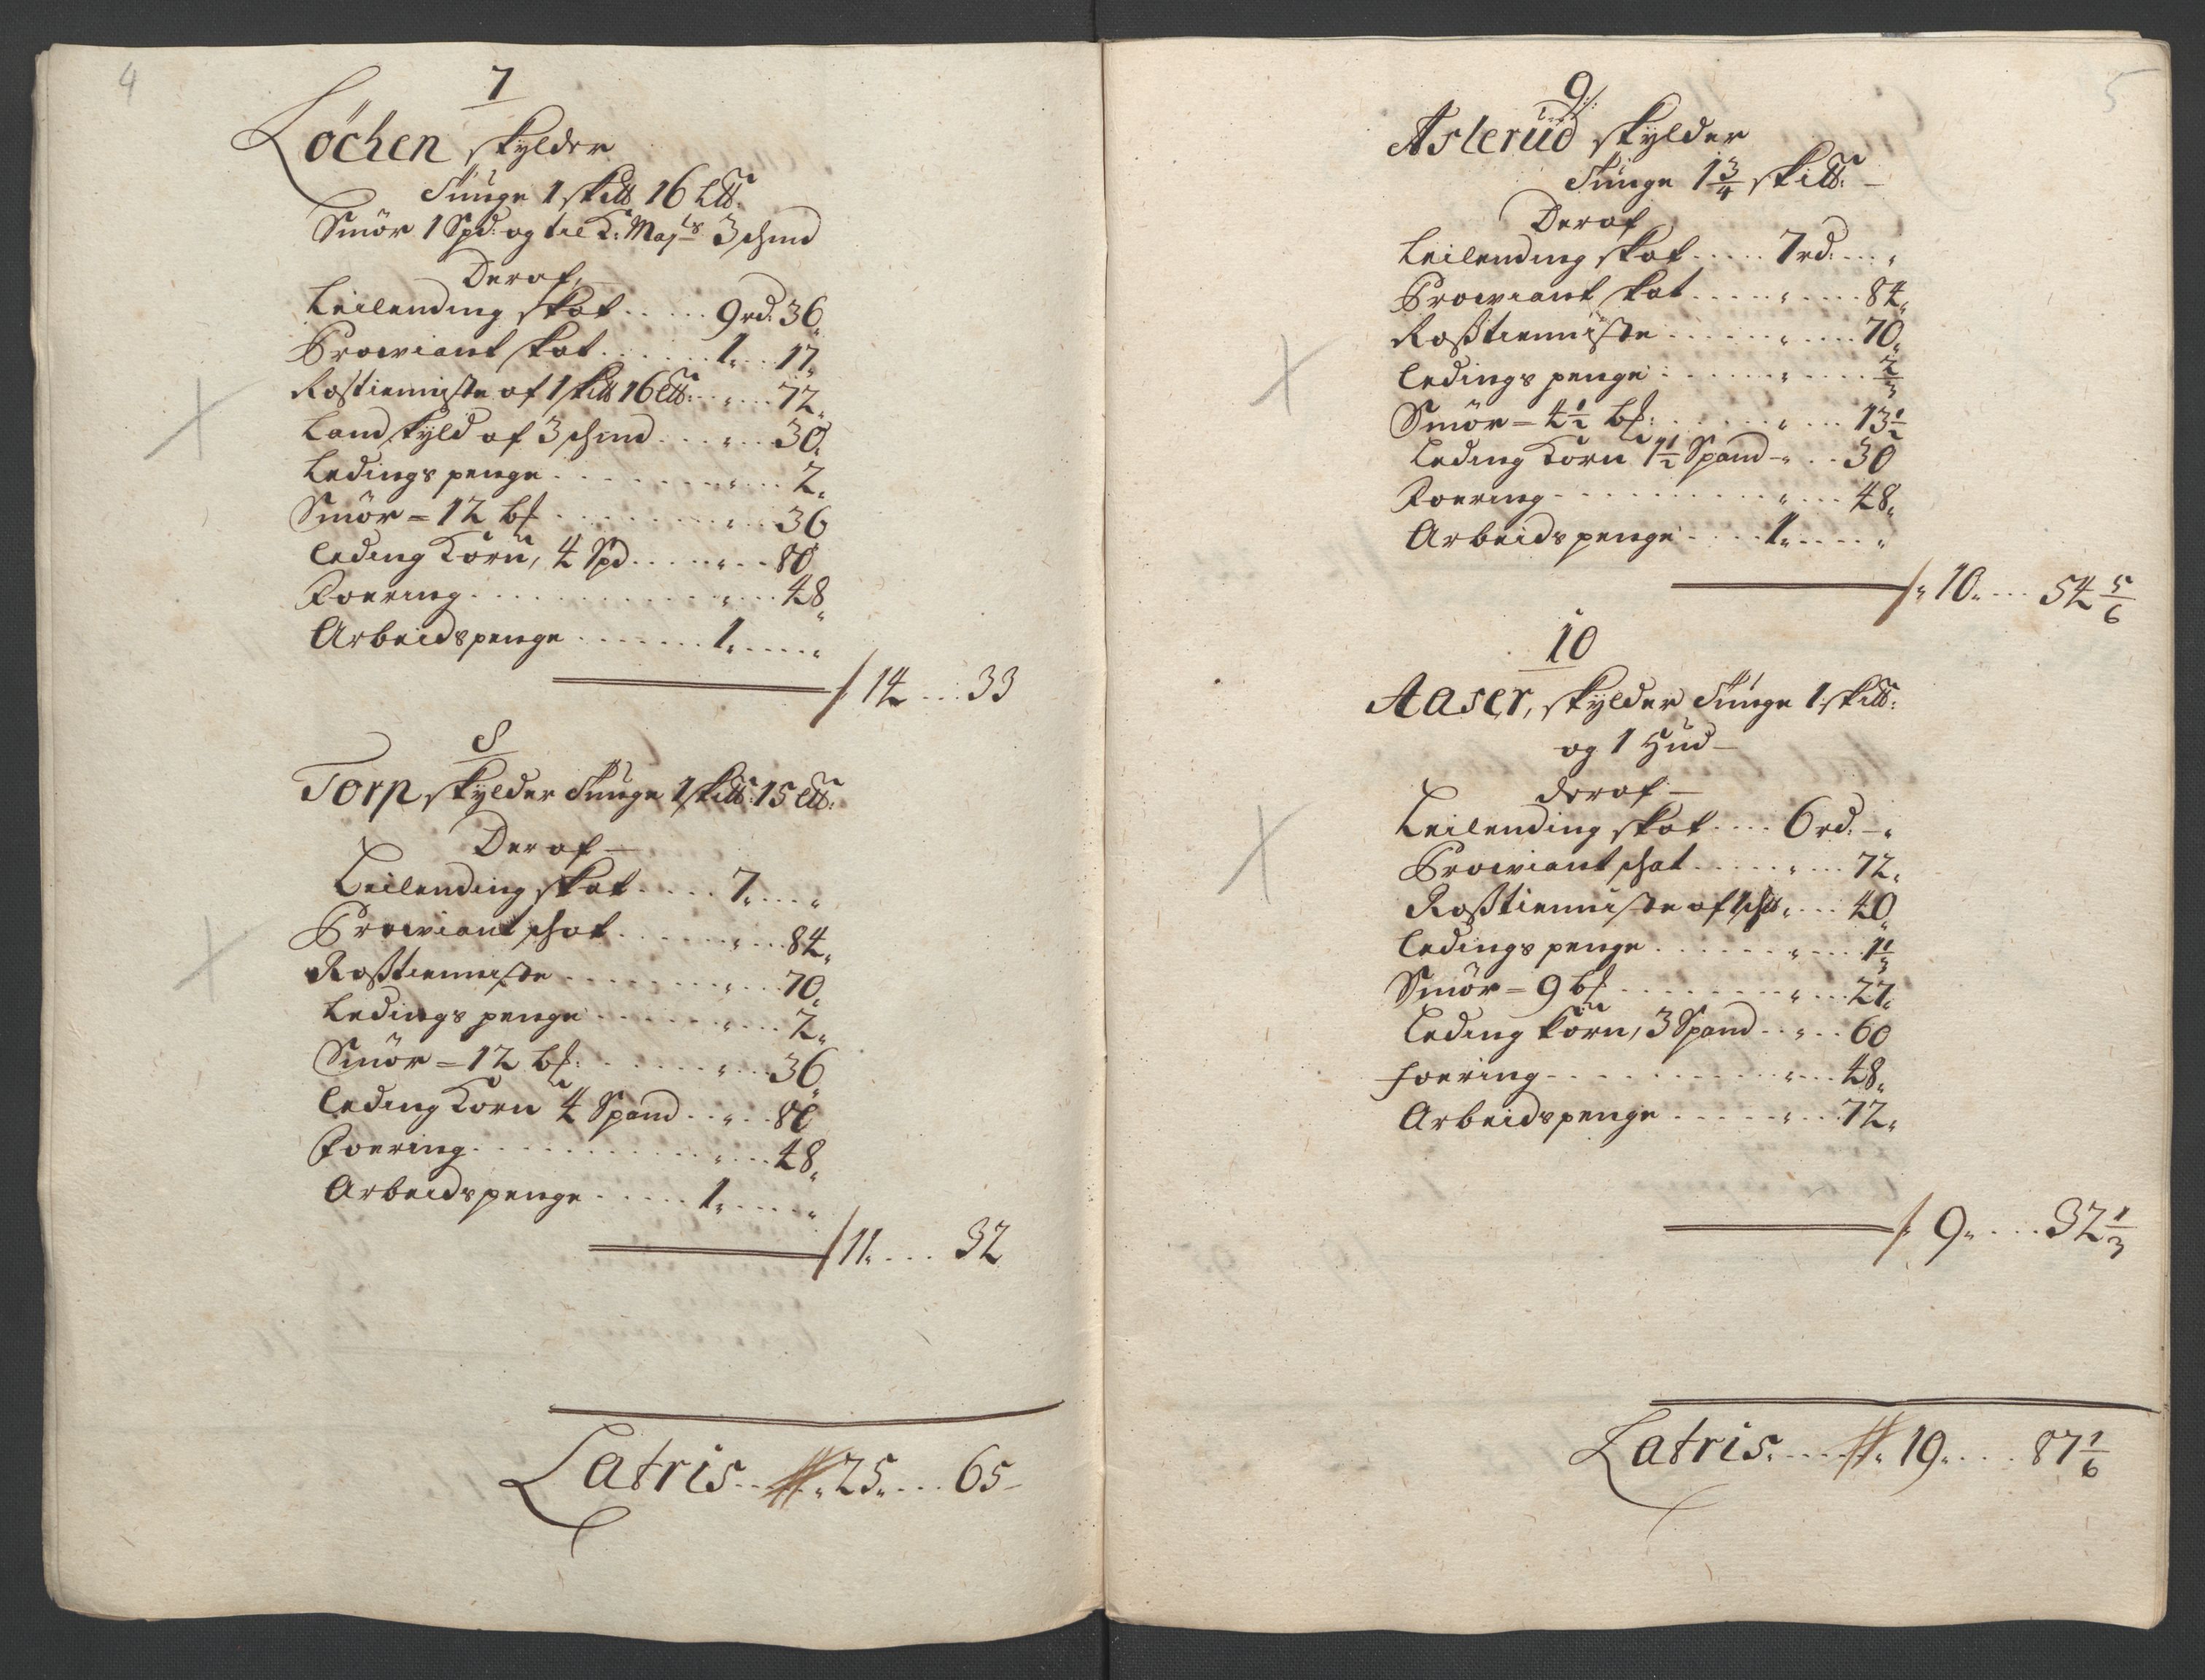 4
7
Löchen skylder
Tunge 1 skitt 16 Ltt:
Smör 1 Spd: og til K: Majts 3 schind
Deraf,
Leilending skat ..... 9 rd: 36
Proviant skat ...... 1 ... 17
Rostienniste af 1 skitt 16 Ltt: " ... 72
Land skyld af 3 schind ... " ... 30
Ledings penge ....... " ... 2
Smör = 12 bs ........ " ... 36
Leding Korn, 4 Spd ..... " ... 80
Foering ............ " ... 48
Arbeidspenge ....... 1 ..... "
14 ... 33
8
Torp skylder Tunge 1 skitt: 15 Ltt:
Deraf
Leilending skat .... 7 .... "
Proviant schat ...... " ... 84
Rosstienniste ....... " ... 70
Ledings penge ...... " ... 2
Smör = 12 bs: ...... " ... 36
Leding Korn 4 Spand .. " .. 80
Foering ............ " ... 48
Arbeidspenge ..... 1 ..... "
11 .... 32
Latris ... 25 .... 65
5
9
Aslerud skylder
Tunge 1 3/4 skitt:
Deraf
Leilending skat ..... 7 rd: ... "
Proviant skat .... " .... 84
Rosstienniste ...... " .... 70
Ledings penge ...... " .... 2/3
Smör = 4 1/2 bs: ..... " ... 13 1/2
Leding Korn 1 1/2 Spand " .. 30
Foering .......... " ... 48
Arbeids penge .... 1 ..... "
10 .... 54 5/6
10
Aaser, skylder Tunge 1 skitt:
og 1 Hud
deraf
Leilending skat .... 6 rd. "
Proviant schat ..... " ... 72
Rosstienniste af 1 schtt " ... 40
Ledings penge ...... " ... 1 1/3
Smör = 9 bs ........ " ... 27
Leding Korn, 3 Spand .. " .. 60
foering .......... " ... 48
Arbeidspenge ..... " ... 72
9 .... 32 1/3
Latris .... 19 .... 87 1/6